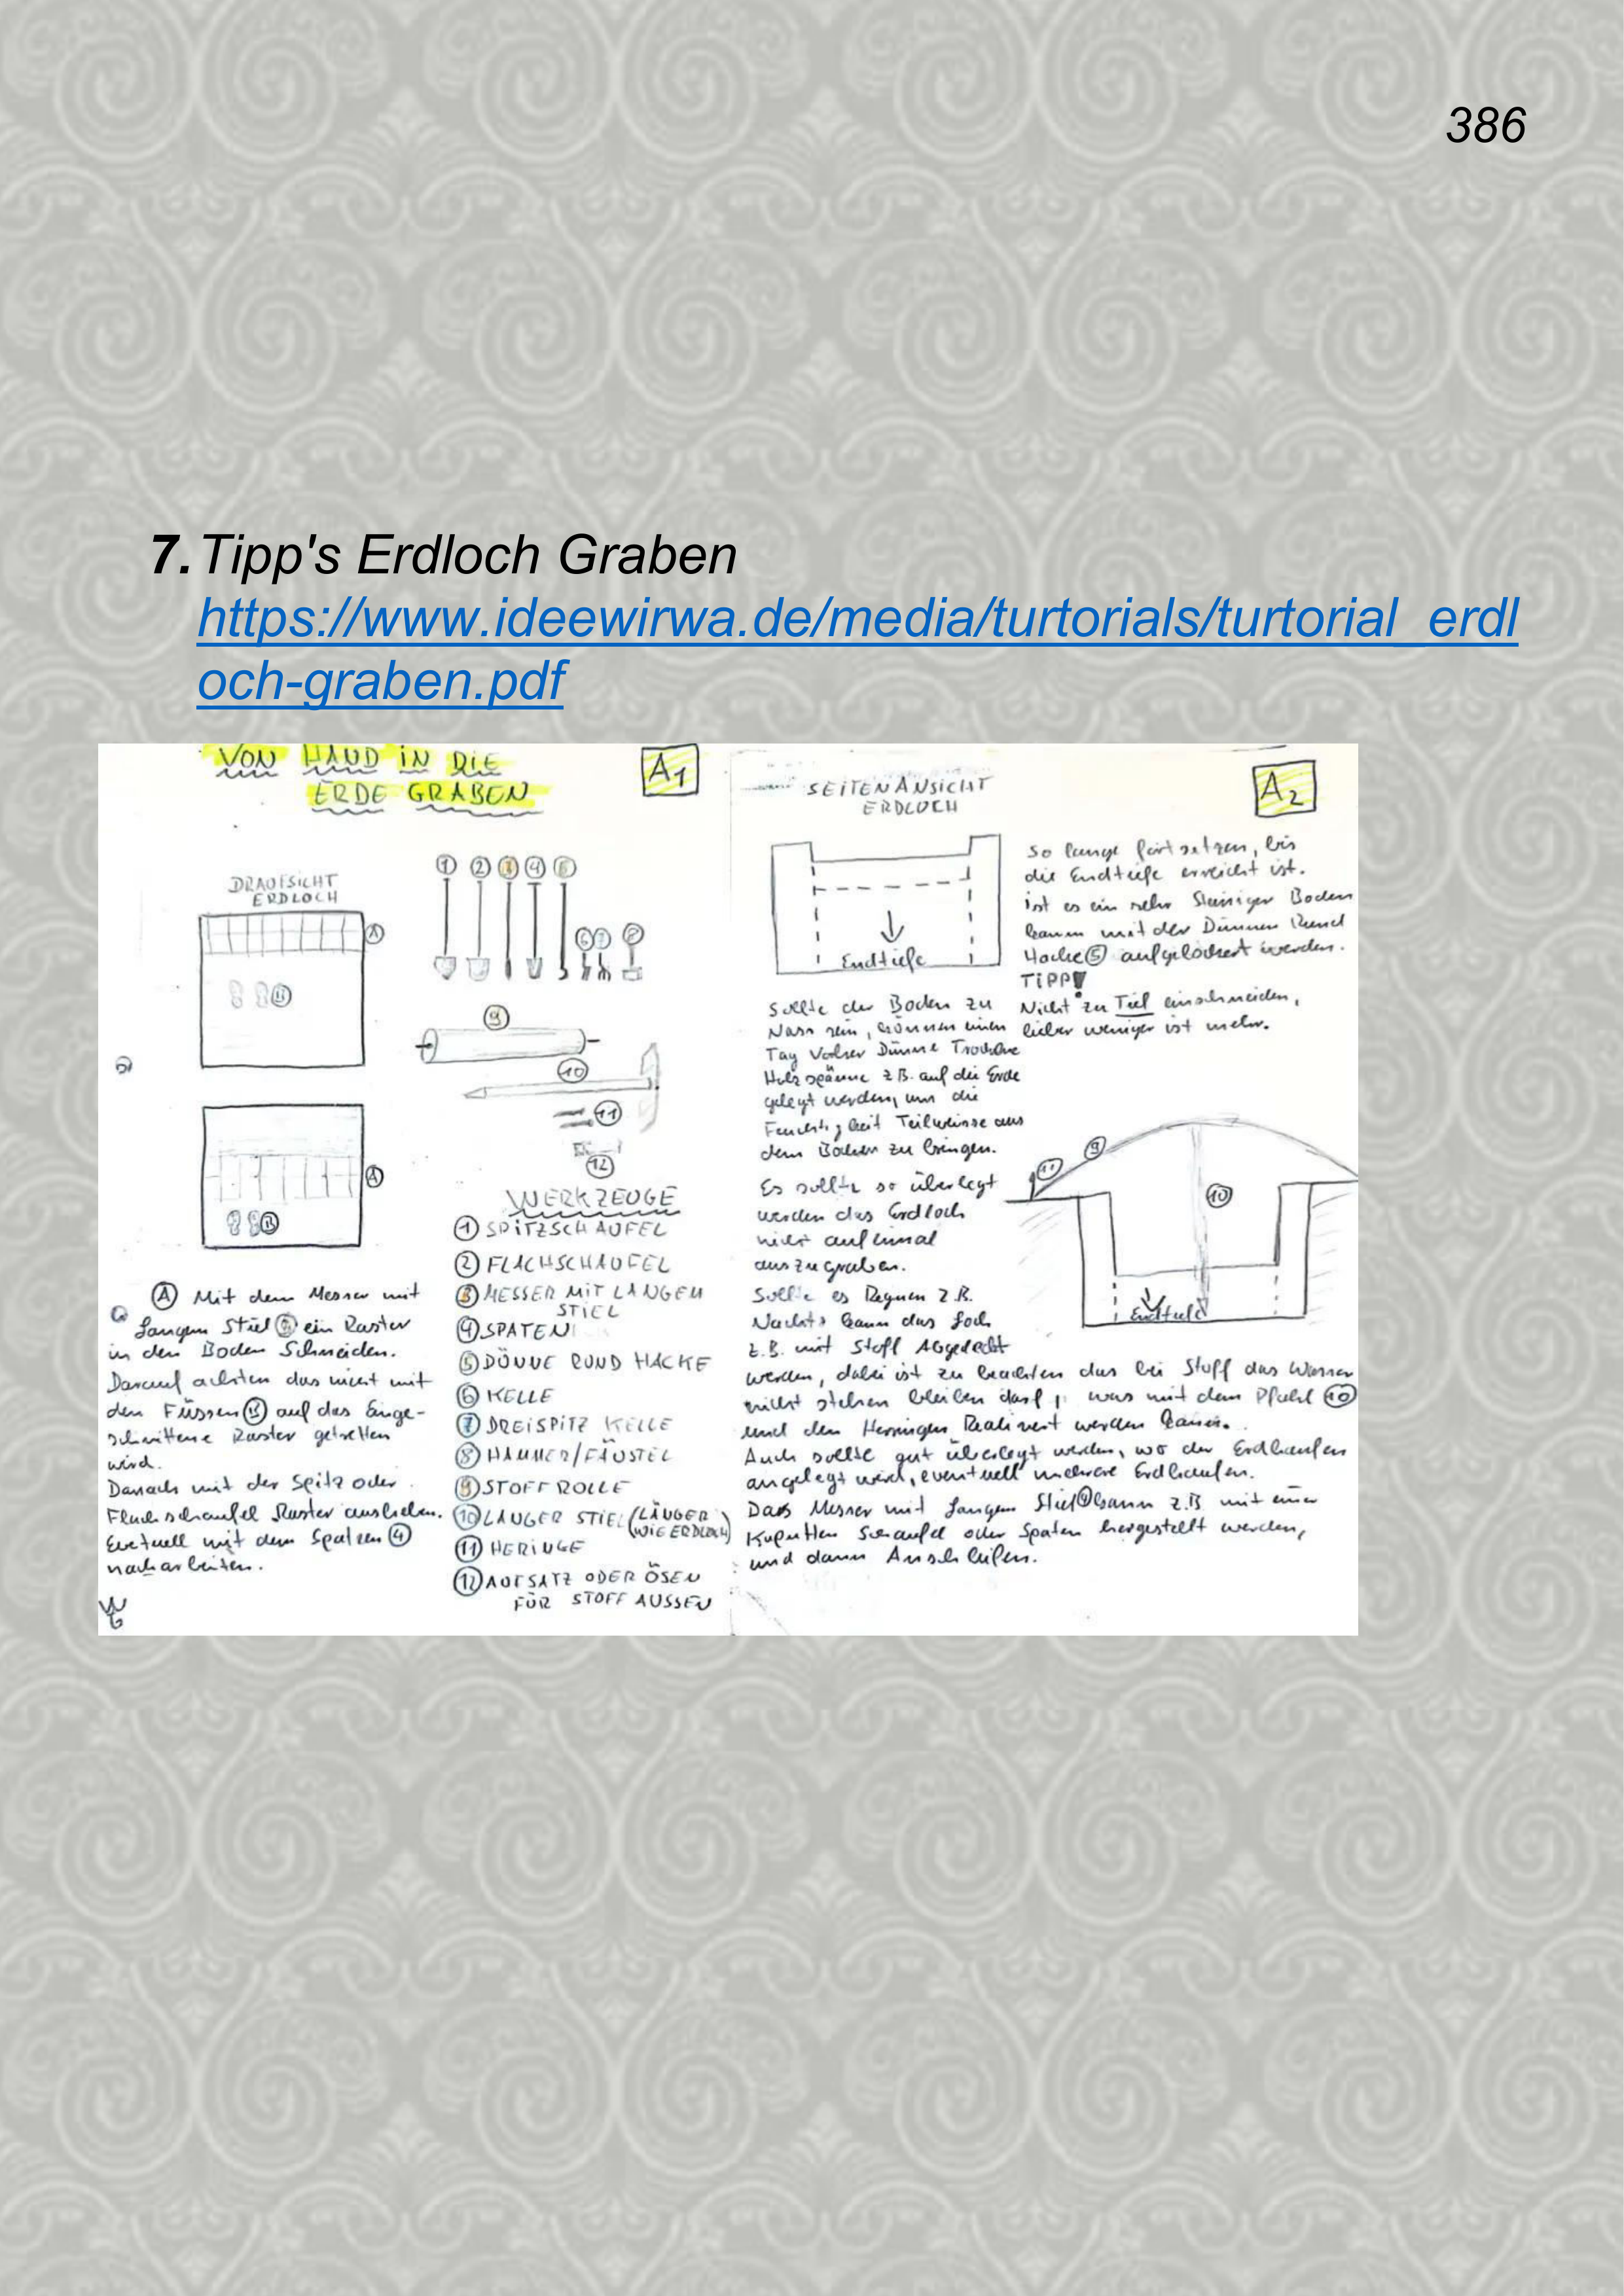 386
7. Tipp's Erdloch Graben
https://www.ideewirwa.de/media/turtorials/turtorial_erdl
och-graben.pdf
VON HAND IN DIE
ERDE GRABEN
A1
DRAUFSICHT
ERDLOCH
A
B
A
B
1 2 3 4 5
6 7 8
9
10
11
12
WERKZEUGE
1 SPITZSCHAUFEL
2 FLACHSCHAUFEL
3 MESSER MIT LANGEM
STIEL
4 SPATEN
5 DÜNNE RUND HACKE
6 KELLE
7 DREISPITZ KELLE
8 HAMMER/FÄUSTEL
9 STOFF ROLLE
10 LANGER STIEL (LÄNGER
WIE ERDLOCH)
11 HERINGE
12 AUFSATZ ODER ÖSEN
FÜR STOFF AUSSEN
A Mit dem Messer mit
Langem Stiel 3 ein Raster
in den Boden Schneiden.
Darauf achten das nicht mit
den Füssen B auf das Einge-
schnittene Raster getretten
wird.
Danach mit der Spitz oder
Flachschaufel Raster ausheben.
Eventuell mit dem Spaten 4
nacharbeiten.
SEITENANSICHT
ERDLOCH
A2
Endtiefe
So lange fortsetzen, bis
die Endtiefe erreicht ist.
ist es ein sehr Steiniger Boden
kann mit der Dünnen Rund
Hacke 5 aufgelockert werden.
TIPP!
Nicht zu Tief einschneiden,
lieber weniger ist mehr.
Sollte der Boden zu
Nass sein, können einen
Tag Vorher Dünne Trockne
Holzspänne z.B. auf die Erde
gelegt werden, um die
Feuchtigkeit Teilweisse aus
dem Boden zu bringen.
Es sollte so überlegt
werden das Erdloch
nicht auf einmal
auszugraben.
Sollte es Regnen z.B.
Nachts kann das Loch
z.B. mit Stoff Abgedeckt
werden, dabei ist zu beachten das bei Stoff das Wasser
nicht stehen bleiben darf, was mit dem Pfahl 10
und den Herringen Realisiert werden kann.
Auch sollte gut überlegt werden, wo der Erdhaufen
angelegt wird, eventuell mehrere Erdhaufen.
Das Messer mit Langem Stiel kann z.B. mit einer
Kaputten Schaufel oder Spaten hergestellt werden,
und dann Anschleifen.
11
9
10
Endtiefe